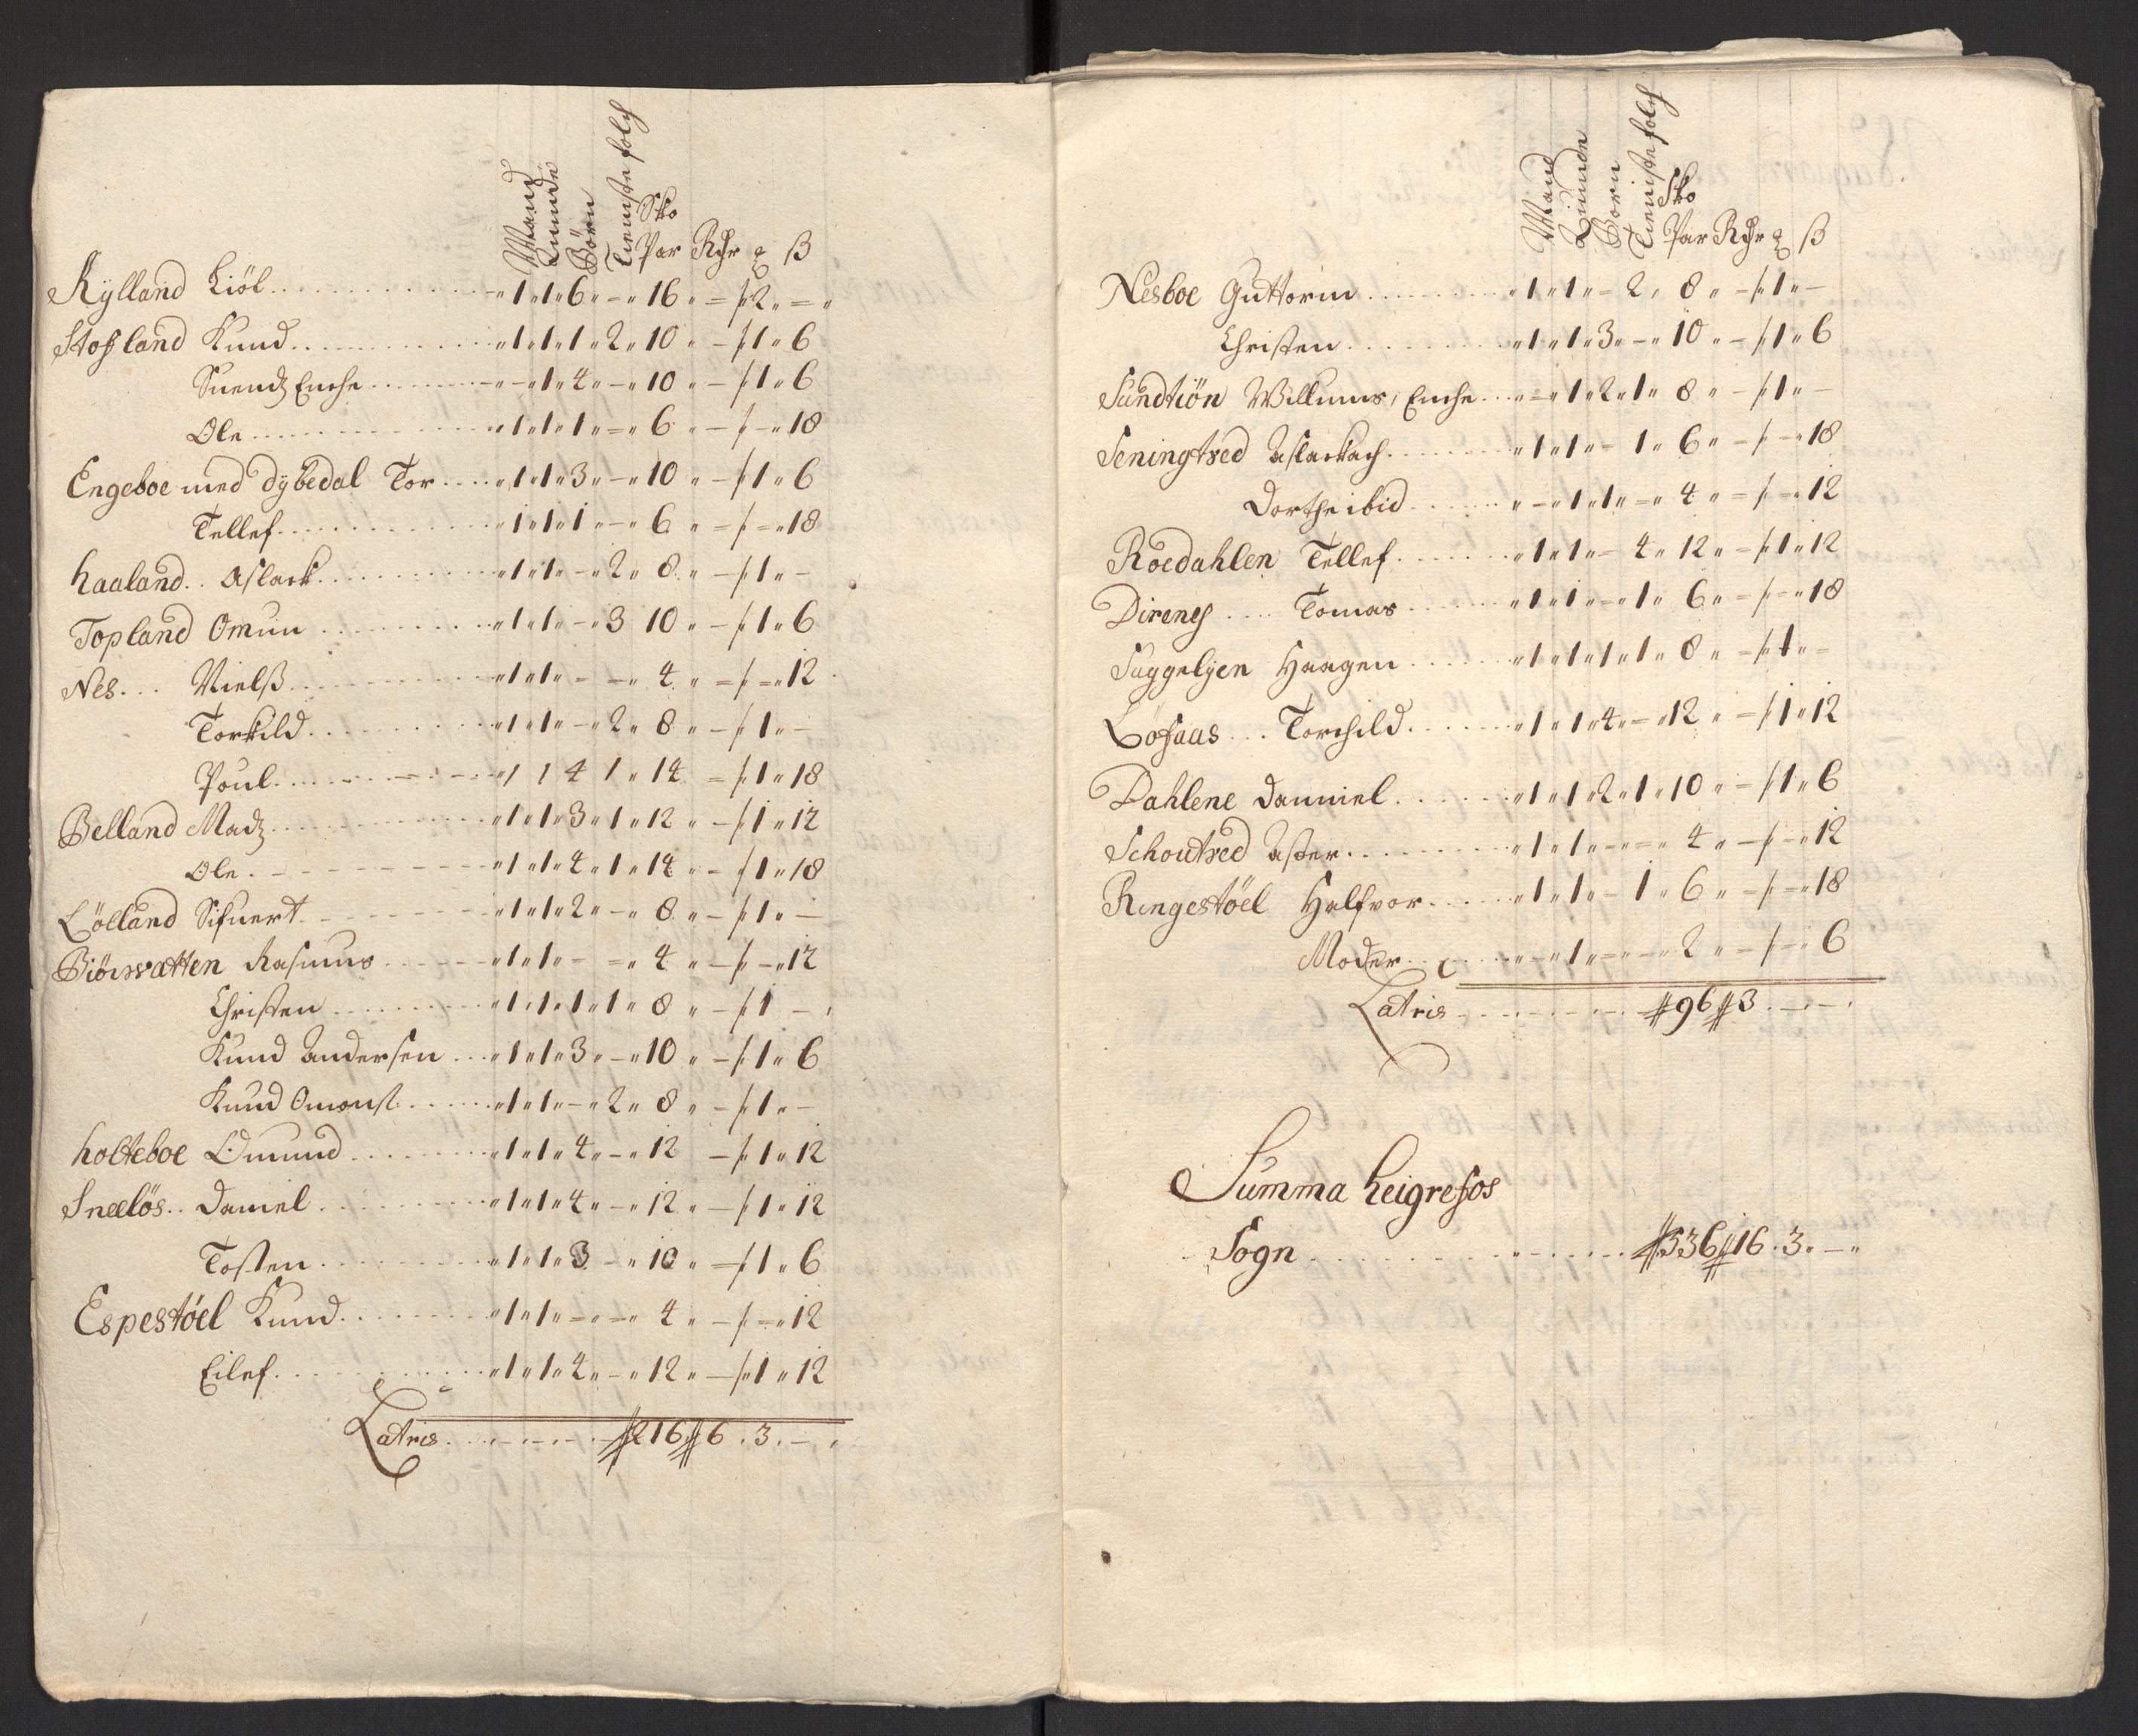 Mand Quinde Börn Tieniste folch Sko Par Rdr ℥ ß
Rÿlland Liöl 1 1 6 – 16 – 2 –
Stosland Knud 1 1 1 2 10 – 1 6
Suends Enche – 1 4 – 10 – 1 6
Ole 1 1 1 – 6 – – 18
Engeboe med Dÿbedal Tor 1 1 3 – 10 – 1 6
Tellef 1 1 1 – 6 – – 18
Haaland Aslack 1 1 – 2 8 – 1 –
Topland Omun 1 1 – 3 10 – 1 6
Nes Nielß 1 1 – – 4 – – 12
Torkild 1 1 – 2 8 – 1 –
Poul 1 1 4 1 14 – 1 18
Belland Madz 1 1 3 1 12 – 1 12
Ole 1 1 4 1 14 – 1 18
Löland Sifuert 1 1 2 – 8 – 1 –
Biörvatten Rasmus 1 1 – – 4 – – 12
Christen 1 1 1 1 8 – 1 –
Knud Andersen 1 1 3 – 10 – 1 6
Knud Omonst 1 1 – 2 8 – 1 –
Holteboe Omund 1 1 4 – 12 – 1 12
Sneelös Daniel 1 1 4 – 12 – 1 12
Tosten 1 1 3 – 10 – 1 6
Espestöel Knud 1 1 – – 4 – – 12
Eilef 1 1 4 – 12 – 1 12
Latris 216 6 . 3 . –
Mand Quinde Börn Tieniste folch Sko Par Rdr ℥ ß
Nesboe Guttorm 1 1 – 2 8 – 1 –
Christen 1 1 3 – 10 – 1 6
Sundtiön Willums Enche – 1 2 1 8 – 1 –
Seningtved Aslackach 1 1 – 1 6 – – 18
Dorthe ibid – 1 1 – 4 – – 12
Roedahlen Tellef 1 1 – 4 12 – 1 12
Direnes Tomas 1 1 – 1 6 – – 18
Suggelien Haagen 1 1 1 1 8 – 1 –
Löfaas Torchild 1 1 4 – 12 – 1 12
Dahlene Danniel 1 1 2 1 10 – 1 6
Schoutved Asser 1 1 – – 4 – – 12
Ringestöel Halfvor 1 1 – 1 6 – – 18
Moder – 1 – – 2 – – 6
Latris 96 3 . – .
Summa Heigrefos
Sogn 336 16 . 3 . –